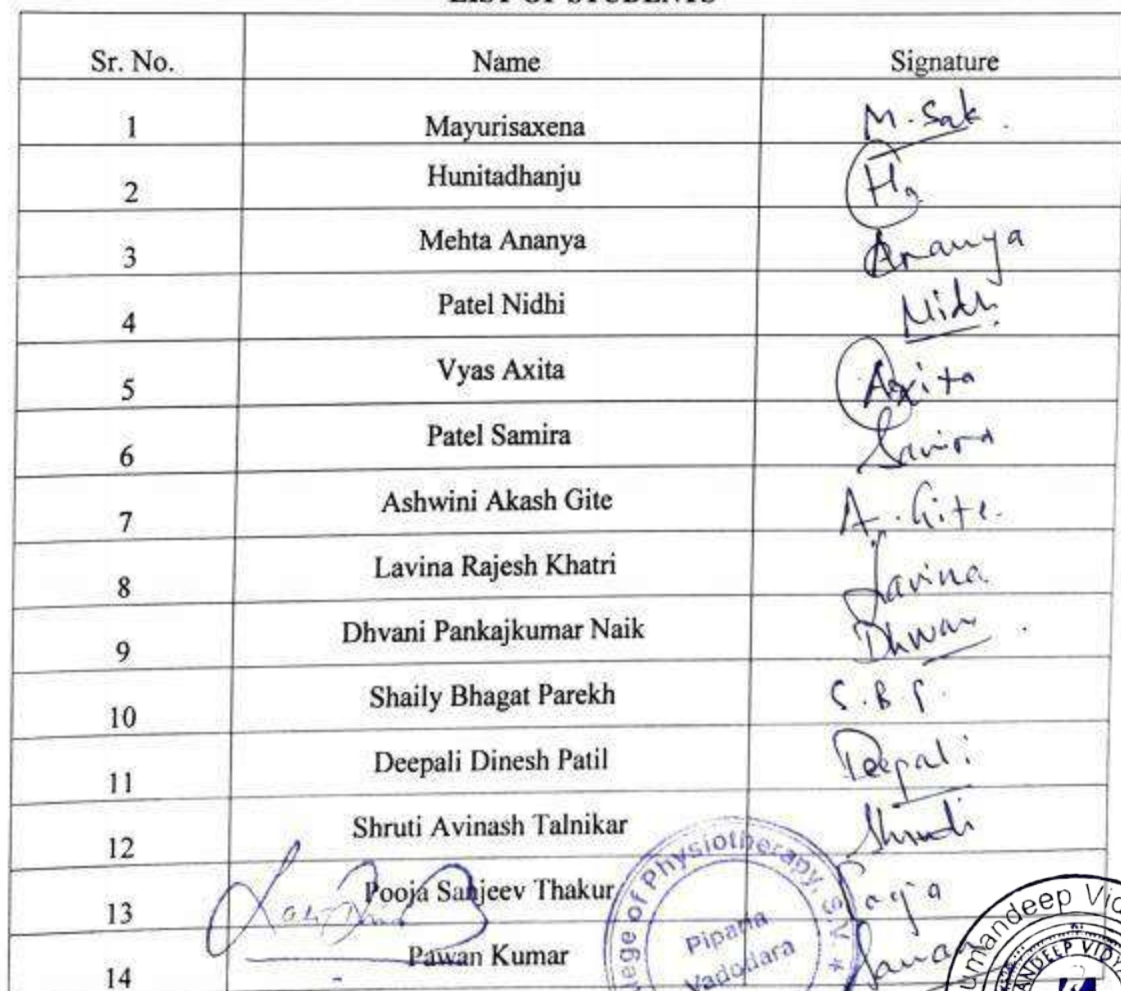 LIST OF STUDENTS
Sr. No. Name Signature
1 Mayurisaxena M. Sak.
2 Hunitadhanju
3 Mehta Ananya Ananya
4 Patel Nidhi Nidhi
5 Vyas Axita Axita
6 Patel Samira Samira
7 Ashwini Akash Gite A. Gite.
8 Lavina Rajesh Khatri Lavina
9 Dhvani Pankajkumar Naik Dhwani
10 Shaily Bhagat Parekh S.B.P.
11 Deepali Dinesh Patil Deepali
12 Shruti Avinash Talnikar Shruti
13 Pooja Sanjeev Thakur Pooja
14 Pawan Kumar
lege of Physiotherapy, SV
Piparia
Vadodara
umandeep Vid
MANDEEP VIDY